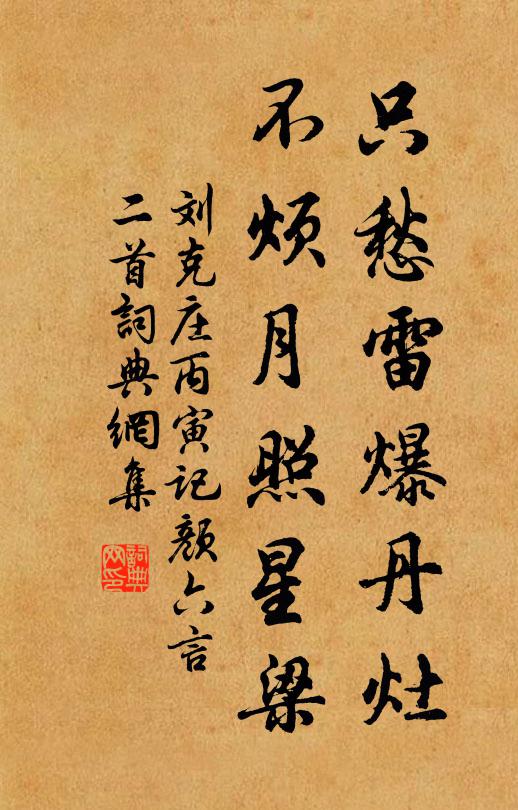 只愁雷爆丹灶
不烦月照星梁
刘克庄丙寅记颜六言
二首詞典網集
詞典
网印